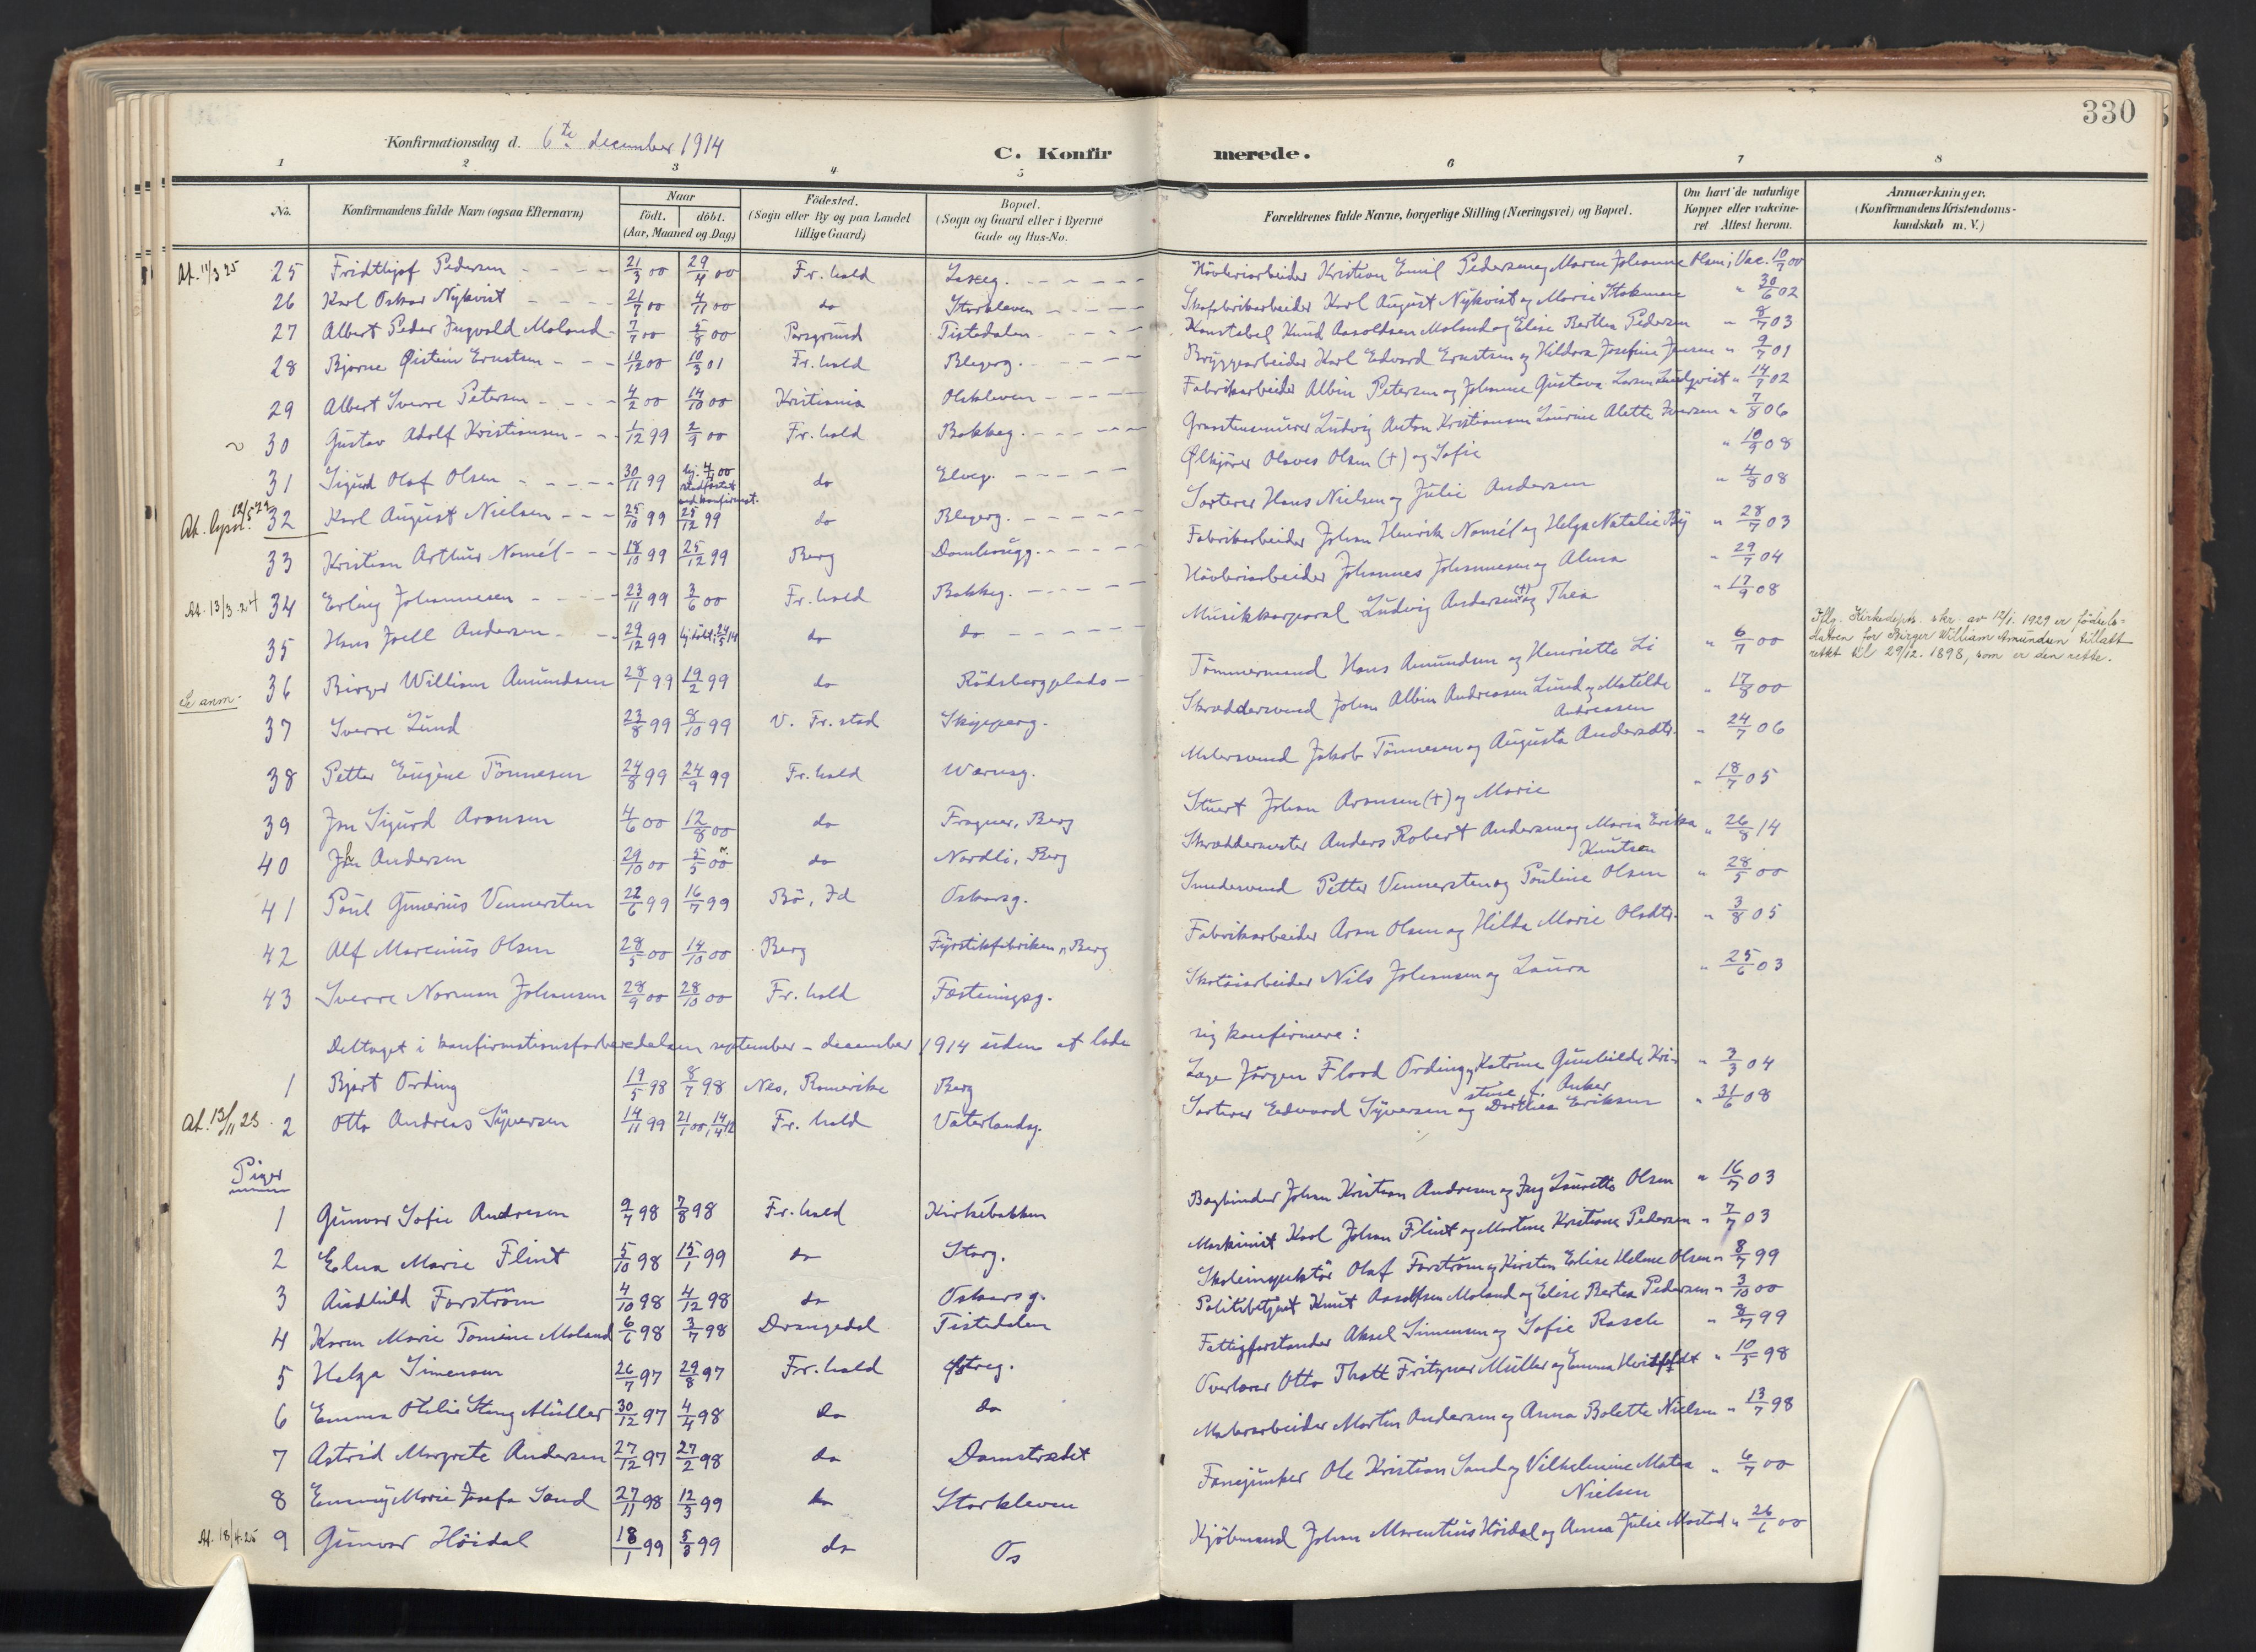 330
Konfirmationsdag d. 6te december 1914
C. Konfirmerede.
1 2 3 4 5 6 7 8
No.
Konfirmandens fulde Navn (ogsaa Efternavn)
Naar
født. døbt.
(Aar, Maaned og Dag)
Fødested.
(Sogn eller By og paa Landet
tillige Gaard)
Bopæl.
(Sogn og Gaard eller i Byerne
Gade og Hus-No.
Forældrenes fulde Navne, borgerlige Stilling (Næringsvei) og Bopæl.
Om havt de naturlige
Kopper eller vakcine-
ret Attest herom.
Anmærkninger.
(Konfirmandens Kristendoms-
kundskab m. V.)
At. 11/3 25 25 Fridthjof Pedersen 21/3 00 29/4 00 Fr.hald Høvleriarbeider Kristian Emil Pedersen og Maren Johanne Olsen; Vac. 10/7 00
26 Karl Oskar Nykvist 21/7 00 4/11 00 do Storkleven Skofabrikarbeider Karl August Nykvist og Marie Stokman " 30/6 02
27 Albert Peder Ingvald Moland 7/7 00 5/8 00 Porsgrund Tistedalen Konstabel Knud Aasoldsen Moland og Elise Berthea Pedersen " 8/7 03
28 Bjarne Øistein Ernstsen 10/12 00 10/3 01 Fr.hald Blegerg. Bryggearbeider Karl Edvard Ernstsen og Hildora Josefine Jensen " 9/7 01
29 Albert Sverre Petersen 4/2 00 14/10 00 Kristiania Olskleven Fabrikarbeider Albin Petersen og Johanne Gustava Larsen Lundqvist " 14/7 02
30 Gustav Adolf Kristiansen 1/12 99 2/9 00 Fr.hald Bakkeg. Graastensmurer Ludvig Anton Kristiansen Laurine Alette Iversen " 7/8 06
31 Sigurd Olaf Olsen 30/11 99 hj. 4/4 00 stadfæstet ved konfirmat. do Elveg. Ølkjører Olaves Olsen (+) og Sofie " 10/9 08
At. lysn. 12/5 24 32 Karl August Nielsen 25/10 99 25/12 99 do Blegerg. Sorterer Hans Nielsen og Julie Andersen " 4/8 08
33 Kristian Arthur Nomél 18/10 99 25/12 99 Berg Dambrugg. Fabrikarbeider Johan Henrik Nomél og Helga Natalie By " 28/7 03
At. 13/3 24 34 Erling Johannesen 23/11 99 3/6 00 Fr.hald Bakkeg. Høvleriarbeider Johannes Johannesen og Alma " 29/7 04
35 Hans Joell Andersen 29/12 99 hj.døbt. 24/5 14 do do Musikkorporal Ludvig Andersen (+) og Thea " 17/9 08
Se anm. 36 Birger William Amundsen 28/1 99 19/2 99 do Rødsbergplads Tømmermand Hans Amundsen og Henriette Li " 6/7 00
Iflg. Kirkedepts. skr. av 12/1. 1929 er fødsels-
datoen for Birger William Amundsen tillatt
rettet til 29/12. 1898, som er den rette.
37 Sverre Lund 23/8 99 8/10 99 V. Fr.stad Skipperg. Skræddersvend Johan Albin Andreasen Lund og Matilde Andreasen " 17/8 00
38 Petter Eugène Tønnesen 24/8 99 24/9 99 Fr.hald Wærnsg. Malersvend Jakob Tønnesen og Augusta Andersdtr. " 24/7 06
39 Jon Sigurd Aronsen 4/6 00 12/8 00 do Fragner, Berg Stuert Johan Aronsen (+) og Marie " 18/7 05
40 John Andersen 29/10 00 5/5 00 do Nordli, Berg Skræddermester Anders Robert Andersen og Maria Erika Knutsen " 26/8 14
41 Poul Gunerius Vennersten 22/6 99 16/7 99 Bø, Id Oskarsg. Smedesvend Petter Vennersten og Pouline Olsen " 28/5 00
42 Alf Marenius Olsen 28/5 00 14/10 00 Berg Fyrstikfabriken, Berg Fabrikarbeider Aron Olsen og Hilda Marie Olsdtr. " 3/8 05
43 Sverre Norman Johansen 28/9 00 28/10 00 Fr.hald Fæstningsg. Skotøiarbeider Nils Johansen og Laura " 25/6 03
Deltaget i konfirmationsforberedelsen september - december 1914 uden at lade sig konfirmere:
1 Bjart Ording 19/5 98 8/7 98 Nes, Romerike Berg Læge Jørgen Flood Ording og Katrine Gunhilde Kristine f. Anker " 3/3 04
At. 13/11 23. 2 Otto Andreas Syversen 14/11 99 21/1 00, 14/4 12 Fr.hald Vaterlandsg. Sorterer Edvard Syversen og Dorthea Eriksen " 31/6 08
Piger
1 Gunvor Sofie Andresen 9/7 98 7/8 98 Fr.hald Kirkebakken Bogbinder Johan Kristian Andresen og Ing Lauritta Olsen " 16/7 03
2 Edna Marie Flint 5/10 98 15/1 99 do Storg. Maskinist Karl Johan Flint og Martine Kristiane Pedersen " 7/7 03
3 Audhild Forstrøm 4/10 98 4/12 98 do Oskarsg. Skoleinspektør Olaf Forstrøm og Kirsten Elise Helene Olsen " 8/7 99
4 Karen Marie Tomine Moland 6/6 98 3/7 98 Drangedal Tistedalen Politibetjent Knut Aasolfsen Moland og Elise Bertea Pedersen " 3/10 00
5 Helga Simensen 26/7 97 29/8 97 Fr.hald Østreg. Fattigforstander Aksel Simensen og Sofie Rasch " 8/7 99
6 Emma Otilie Stang Müller 30/12 97 4/4 98 do do Overlærer Otto Thott Fritzner Müller og Emma Hvitfeldt " 10/5 98
7 Astrid Margrete Andersen 27/12 97 27/2 98 do Damstrædet Malerarbeider Martin Andersen og Anna Bolette Nielsen " 13/7 98
8 Emmy Marie Josefa Sand 27/11 98 12/3 99 do Storkleven Fanejunker Ole Kristian Sand og Vilhelmine Matea Nielsen " 6/7 00
At. 18/4 25 9 Gunvor Høidal 18/1 99 5/3 99 do Os Kjøbmand Johan Marentius Høidal og Anna Julie Mostad " 26/6 00